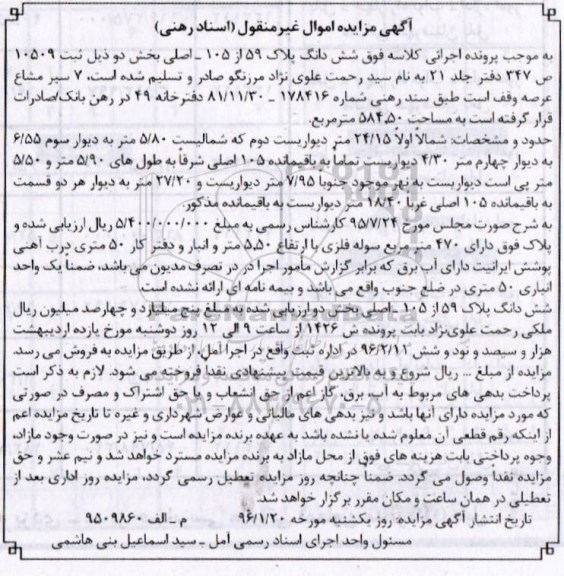 آگهی مزایده اموال غیرمنقول (اسناد رهنی)
به موجب پرونده اجرائی کلاسه فوق شش دانگ پلاک ۵۹ از ۱۰۵ ـ اصلی بخش دو ذیل ثبت ۱۰۵۰۹
ص ۳۴۷ دفتر جلد ۲۱ به نام سید رحمت علوی نژاد مرزنگو صادر و تسلیم شده است، ۷ سیر مشاع
عرصه وقف است طبق سند رهنی شماره ۱۷۸۴۱۶ ـ ۸۱/۱۱/۳۰ دفترخانه ۴۹ در رهن بانک/صادرات
قرار گرفته است به مساحت ۵۸۴،۵۰ مترمربع.
حدود و مشخصات: شمالاً اولاً ۲۴/۱۵ متر دیواریست دوم که شمالیست ۵/۸۰ متر به دیوار سوم ۶/۵۵
به دیوار چهارم متر ۴/۳۰ دیواریست تماماً به باقیمانده ۱۰۵ اصلی شرقاً به طول های ۵/۹۰ متر و ۵/۵۰
متر پی است دیواریست به نهر موجود جنوبا ۷/۹۵ متر دیواریست و ۲۷/۲۰ متر به دیوار هر دو قسمت
به باقیمانده ۱۰۵ اصلی غربا ۱۸/۴۰ متر دیواریست به باقیمانده مذکور.
به شرح صورت مجلس مورخ ۹۵/۷/۲۴ کارشناس رسمی به مبلغ ۵/۴۰۰/۰۰۰/۰۰۰ ریال ارزیابی شده و
پلاک فوق دارای ۴۷۰ متر مربع سوله فلزی با ارتفاع ۵،۵۰ متر و انبار و دفتر کار ۵۰ متری درب آهنی
پوشش ایرانیت دارای آب برق که برابر گزارش مأمور اجرا در تصرف مدیون می باشد، ضمناً یک واحد
انباری ۵۰ متری در ضلع جنوب واقع می باشد و بیمه نامه ای ارائه نشده است.
شش دانگ پلاک ۵۹ از ۱۰۵ ـ اصلی بخش دو ارزیابی شده به مبلغ پنج میلیارد و چهارصد میلیون ریال
ملکی رحمت علوی‌نژاد بابت پرونده ش ۱۴۲۶ از ساعت ۹ الی ۱۲ روز دوشنبه مورخ یازده اردیبهشت
هزار و سیصد و نود و شش ۹۶/۲/۱۱ در اداره ثبت واقع در اجرا آمل، از طریق مزایده به فروش می رسد.
مزایده از مبلغ ... ریال شروع و به بالاترین قیمت پیشنهادی نقدا فروخته می شود. لازم به ذکر است
پرداخت بدهی های مربوط به آب، برق، گاز اعم از حق انشعاب و یا حق اشتراک و مصرف در صورتی
که مورد مزایده دارای آنها باشد و نیز بدهی های مالیاتی و عوارض شهرداری و غیره تا تاریخ مزایده اعم
از اینکه رقم قطعی آن معلوم شده یا نشده باشد به عهده برنده مزایده است و نیز در صورت وجود مازاد،
وجوه پرداختی بابت هزینه های فوق از محل مازاد به برنده مزایده مسترد خواهد شد و نیم عشر و حق
مزایده نقداً وصول می گردد. ضمناً چنانچه روز مزایده تعطیل رسمی گردد، مزایده روز اداری بعد از
تعطیلی در همان ساعت و مکان مقرر برگزار خواهد شد.
تاریخ انتشار آگهی مزایده: روز یکشنبه مورخه ۹۶/۱/۲۰ م ـ الف ۹۵۰۹۸۶۰
مسئول واحد اجرای اسناد رسمی آمل ـ سید اسماعیل بنی هاشمی